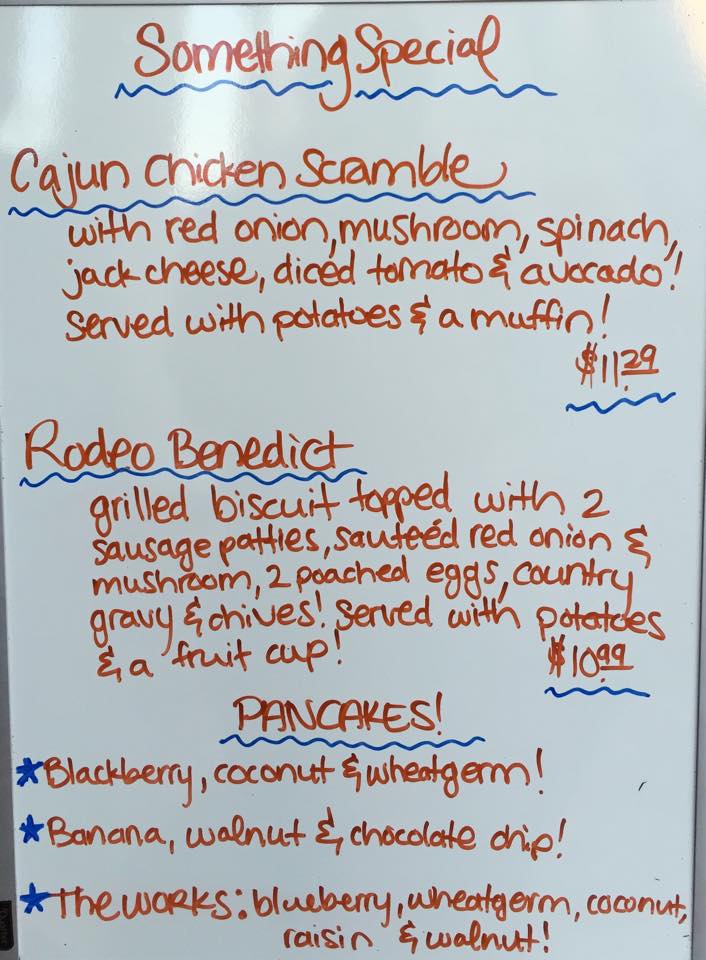 Something Special
Cajun Chicken Scramble
with red onion, mushroom, spinach,
jack cheese, diced tomato & avocado!
served with potatoes & a muffin!
$11.29
Rodeo Benedict
grilled biscuit topped with 2
sausage patties, sauteéd red onion &
mushroom, 2 poached eggs, country
gravy & chives! served with potatoes
& a fruit cup!
$10.99
PANCAKES!
*Blackberry, coconut & wheatgerm!
*Banana, walnut & chocolate chip!
*The works: blueberry, wheatgerm, coconut,
raisin & walnut!